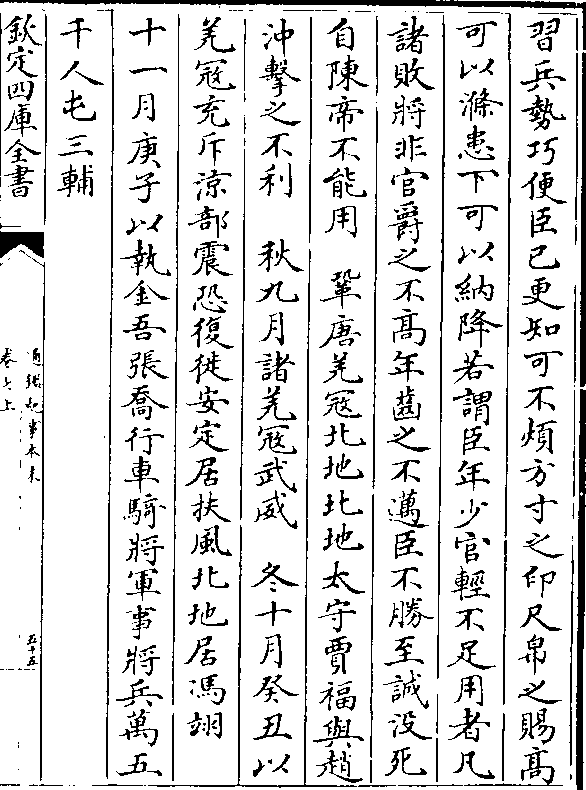 習兵勢巧便臣已更知可不煩方寸之印尺帛之賜髙
可以滌患下可以納降若謂臣年少官輕不足用者凡
諸敗將非官爵之不髙年齒之不邁臣不勝至誠没死
自陳帝不能用　鞏唐羌寇北地北地太守賈福與趙
沖擊之不利　秋九月諸羌寇武威　冬十月癸丑以
羌寇充斥涼部震恐復徙安定居扶風北地居馮翊
十一月庚子以執金吾張喬行車騎將軍事將兵萬五
千人屯三輔
欽定四庫全書
通鑑紀事本末
卷七上
五十五